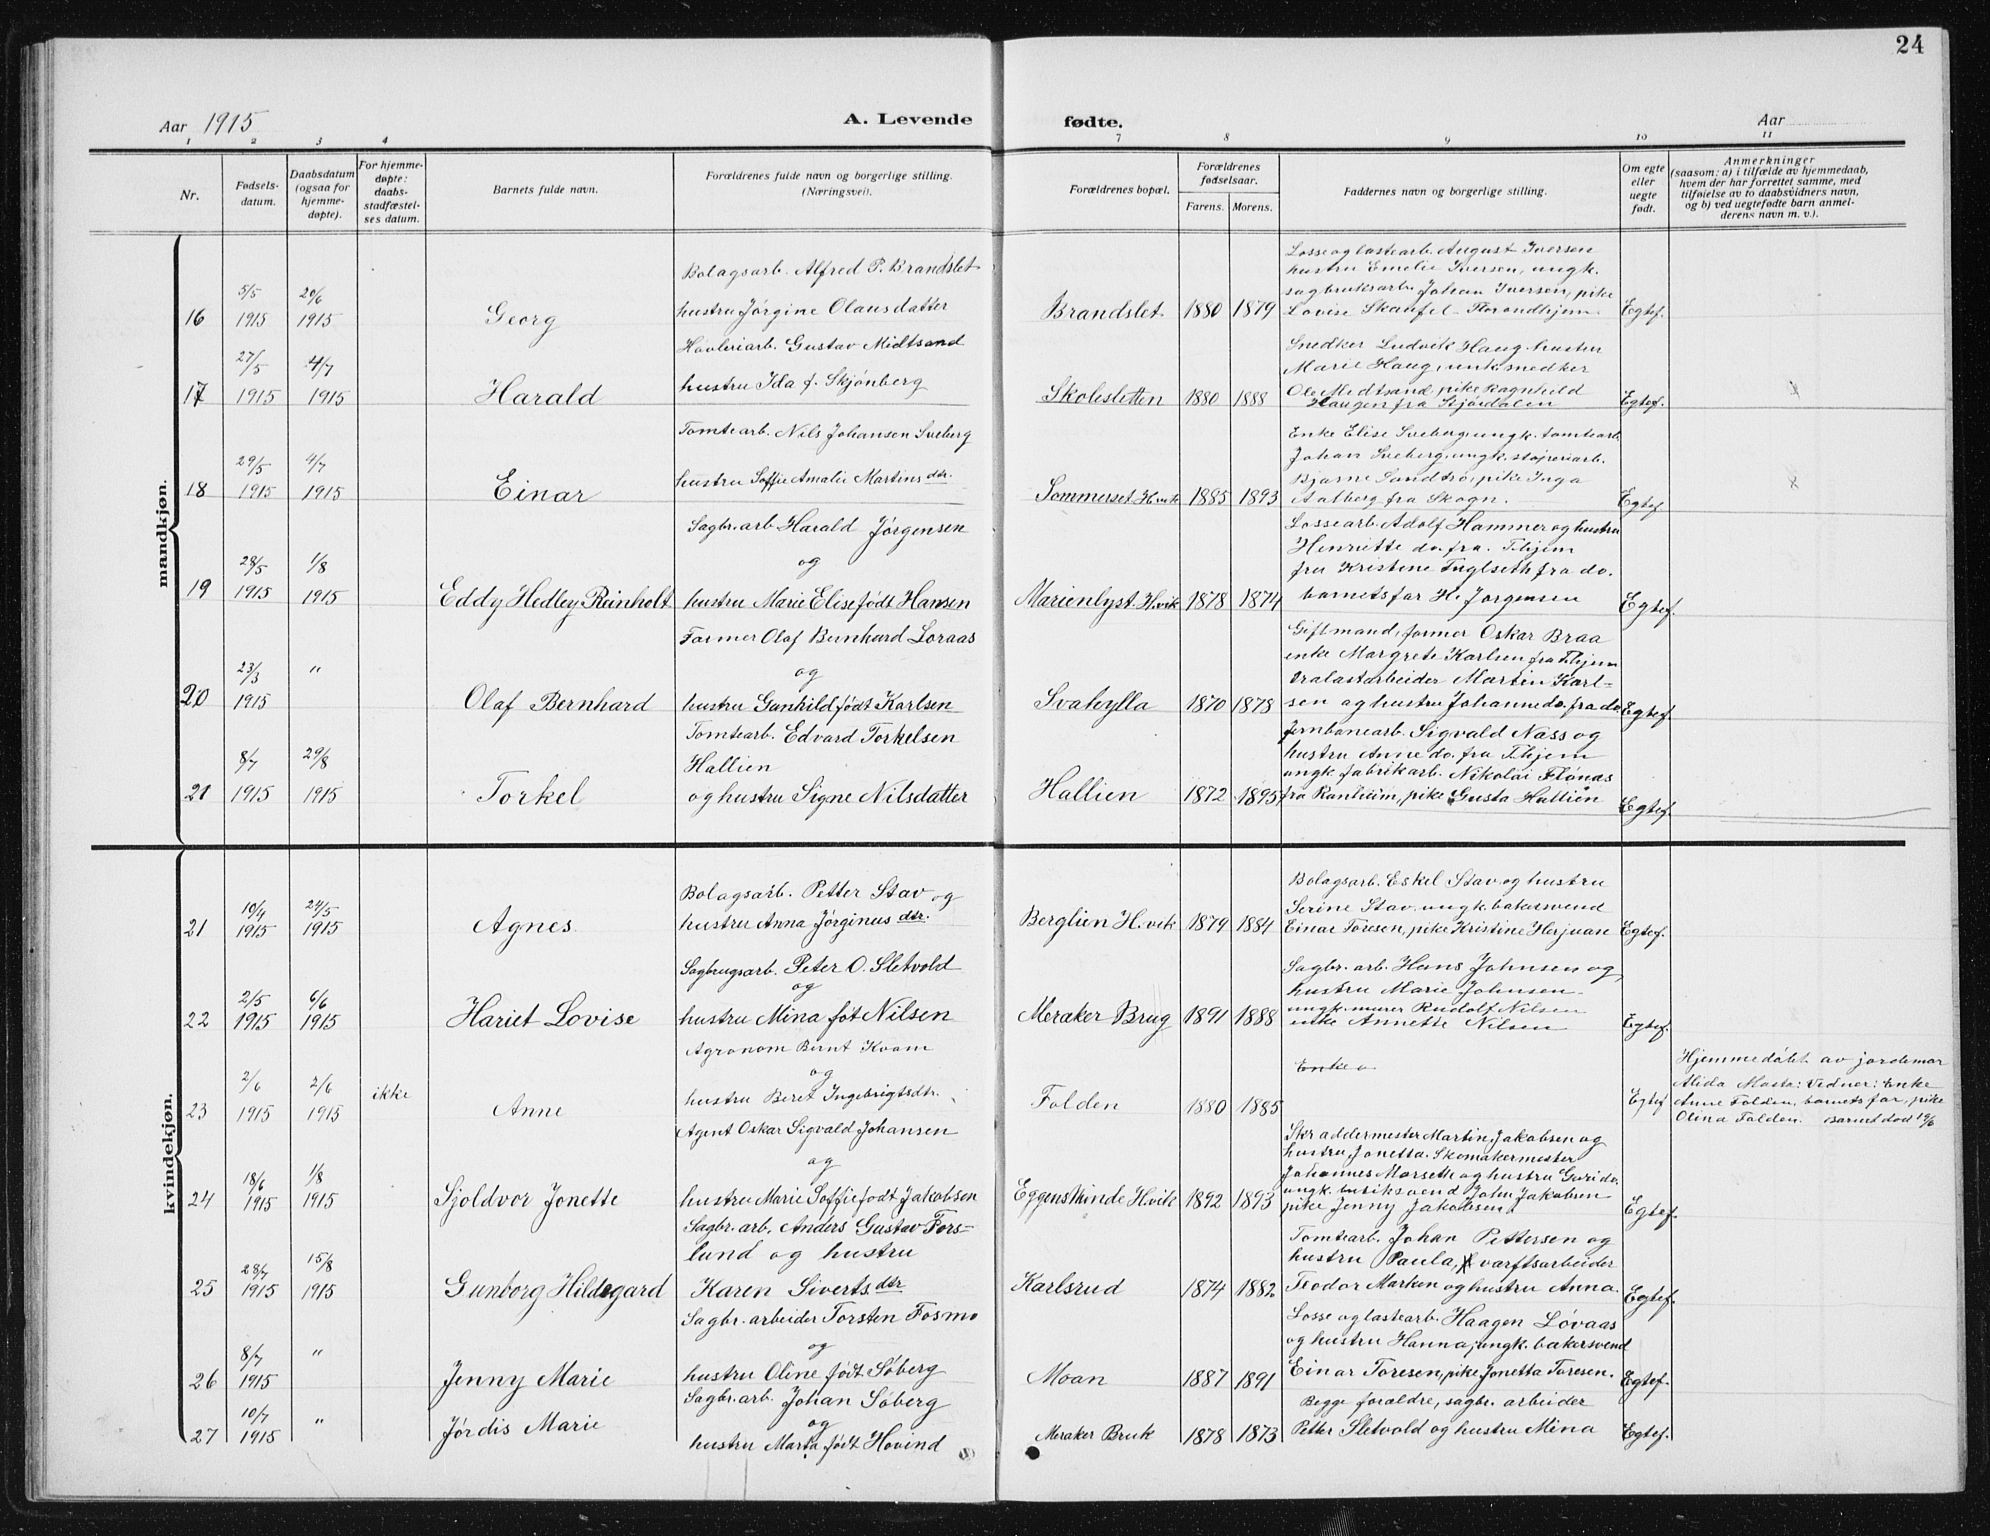 24
Aar 1915
A. Levende
fødte.
Aar
1 2 3 4
7 8 9 10 11
Nr.
Fødsels-
datum.
Daabsdatum
(ogsaa for
hjemme-
døpte).
For hjemme-
døpte:
daabs-
stadfæstel-
ses datum.
Barnets fulde navn.
Forældrenes fulde navn og borgerlige stilling.
(Næringsvei).
Forældrenes bopæl.
Forældrenes
fødselsaar.
Farens. Morens.
Faddernes navn og borgerlige stilling.
Om egte
eller
uegte
født.
Anmerkninger
(saasom: a) i tilfælde av hjemmedaab,
hvem der har forrettet samme, med
tilføielse av to daabsvidners navn,
og b) ved uegtefødte barn anmel-
derens navn m. v.).
mandkjøn.
16
5/5
1915
20/6
1915
Georg
Bolagsarb. Alfred P. Brandslet
hustru Jørgine Olausdatter
Brandslet
1880 1879
Losse og lastearb. August Iversen
hustru Emelie Iversen, ungk.
sagbruksarb. Johan Iversen, pike
Lovise Skaufel
Egtef.
17
27/5
1915
4/7
1915
Harald
Høvleriarb. Gustav Midtsand
hustru Ida f. Skjønberg
Skolesletten
1880 1888
Snedker Ludvik Haug hustru
Marie Haug, unk. snedker
Ole Medtsand, pike Ragnhild
Haugen fra Stjørdalen
Egtef.
x
18
29/5
1915
4/7
1915
Einar
Tomtearb. Nils Johansen Sveberg
hustru Soffie Amalie Martins dtr.
Sommerset H.vik
1885 1893
Enke Elise Sveberg, ungk. tomtearb.
Johan Sveberg, ungk. støperiarb.
Bjarne Sandtrø, pike Inga
Aalberg fra Skogn.
Egtef.
x
19
28/5
1915
1/8
1915
Eddy Hedley Reinholt
Sagbr. arb Harald Jørgensen
og
hustru Marie Elise født Hansen
Marienlyst H.vik
1878 1874
Lossearb. Adolf Hammer og hustru
Henriette do. fra. Thjem
fru Kristine Fuglseth fra do.
barnets far H. Jørgensen
Egtef.
20
23/3
1915
"
Olaf Bernhard
Farmer Olaf Bernhard Loraas
og
hustru Gunhild født Karlsen
Svahylla
1870 1878
Gift mand, former Oskar Braa
enke Margrete Karlsen fra Thjem
Vralastarbeider Martin Karl-
sen og hustru Johanne do. fra do
Egtef.
21
8/7
1915
29/8
1915
Torkel
Tomtearb. Edvard Torkelsen
Hallien
og hustru Signe Nilsdatter
Hallien
1872 1895
Jernbanearb. Sigvald Næss og
hustru Anne do. fra Thjem
ungk. fabrikarb. Nikolai Flønæs
fra Ranheim, pike Gusta Hallien
Egtef.
kvindekjøn.
21
10/4
1915
24/5
1915
Agnes
Bolagsarb. Petter Stav og
hustru Anna Jørginus dtr.
Berglien H.vik
1879 1884
Bolagsarb. Eskel Stav og hustru
Serine Stav, ungk. bakersvend
Einar Toresen, pike Kristine Herjuan
Egtef.
22
2/5
1915
6/6
1915
Hariet Lovise
Sagbrugsarb. Peter O. Sletvold
og
hustru Mina føt Nilsen
Meraker Brug
1891 1888
Sagbr. arb. Hans Johnsen og
hustru Marie Johnsen.
ungk. murer Rudolf Nilsen
enke Annette Nilsen
Egtef.
23
2/6
1915
2/6
1915
ikke
Anne
Agronom Bernt Kvam
og
hustru Beret Ingebrigtsdtr.
Folden
1880 1885
Enke
Egtef
Hjemmedøbt av jordemor
Alida Masta: Vidner: Enke
Anne Folden, barnets far, pike
Olina Folden. Barnet død 19/6
24
18/6
1915
1/8
1915
Sjoldvor Jonette
Agent Oskar Sigvald Johansen
og
hustru Marie Soffie født Jakobsen
Eggens Minde H.vik
1892 1893
Skraddermester Martin Jakobsen og
hustru Jonetta. Skomakermester
Johannes Marseth og hustru Guri do.
ungk. butiksvend John Jakobsen
pike Jenny Jakobsen
Egtef.
25
28/7
1915
15/8
1915
Gunborg Hildegard
Sagbr. arb. Anders Gustav Fors-
lund og hustru
Karen Siverts dtr
Karlsrud
1874 1882
Tomtearb. Johan Pettersen og
hustru Paula, varftsarbeider
Teodor Markan og hustru Anna.
Egtef.
26
8/7
1915
"
Jenny Marie
Sagbr. arbeider Torsten Fosmo
og
hustru Oline født Søberg
Moan
1887 1891
Losse og lastearb. Haagen Løvaas
og hustru Hanna, ungk. bakersvend
Einar Toresen, pike Jonetta Toresen.
Egtef.
27
10/7
1915
"
Jørdis Marie
Sagbr. arb. Johan Søberg
og
hustru Marta født Hovind
Meraker Bruk
1878 1873
Begge foraldre, sagbr. arbeider
Petter Sletvold og hustru Mina
Egtef.